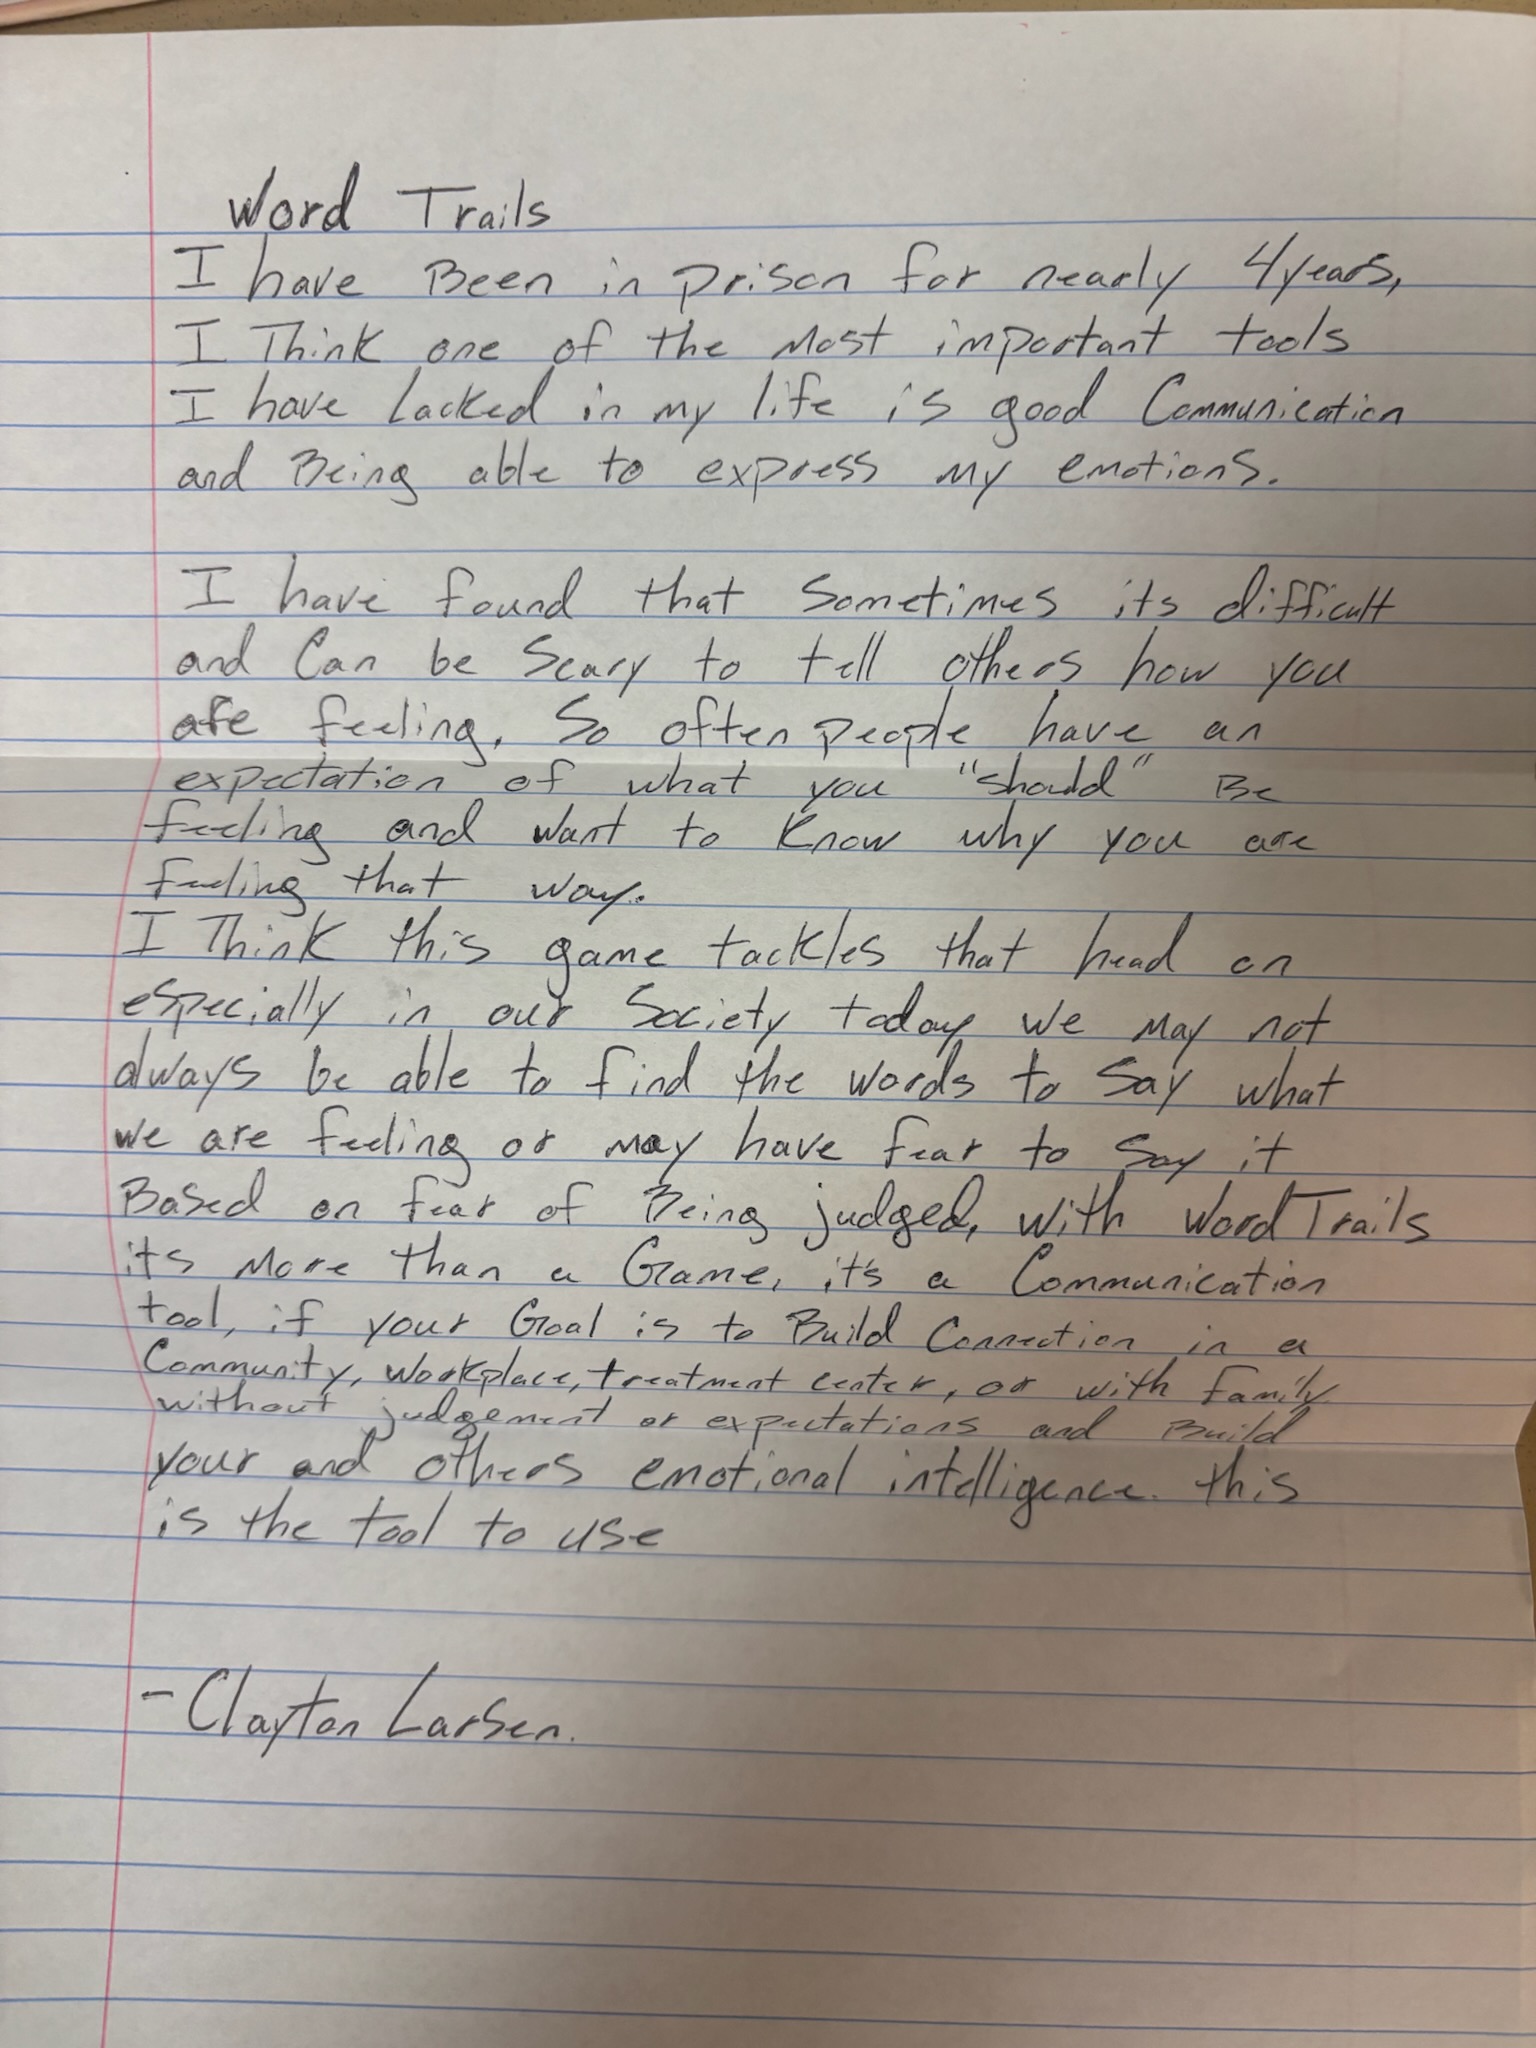 Word Trails
I have Been in prison for nearly 4 years,
I Think one of the most important tools
I have lacked in my life is good Communication
and Being able to express my emotions.
I have found that sometimes its difficult
and Can be Scary to tell others how you
are feeling. So often people have an
expectation of what you "should" Be
feeling and want to know why you are
feeling that way.
I Think this game tackles that head on
especially in our Society today we may not
always be able to find the words to say what
we are feeling or may have fear to say it
Based on fear of Being judged, with Word Trails
its more than a Game, it's a Communication
tool, if your Goal is to Build Connection in a
Community, workplace, treatment center, or with family
without judgement or expectations and Build
your and others emotional intelligence. this
is the tool to use
- Clayton Larsen.